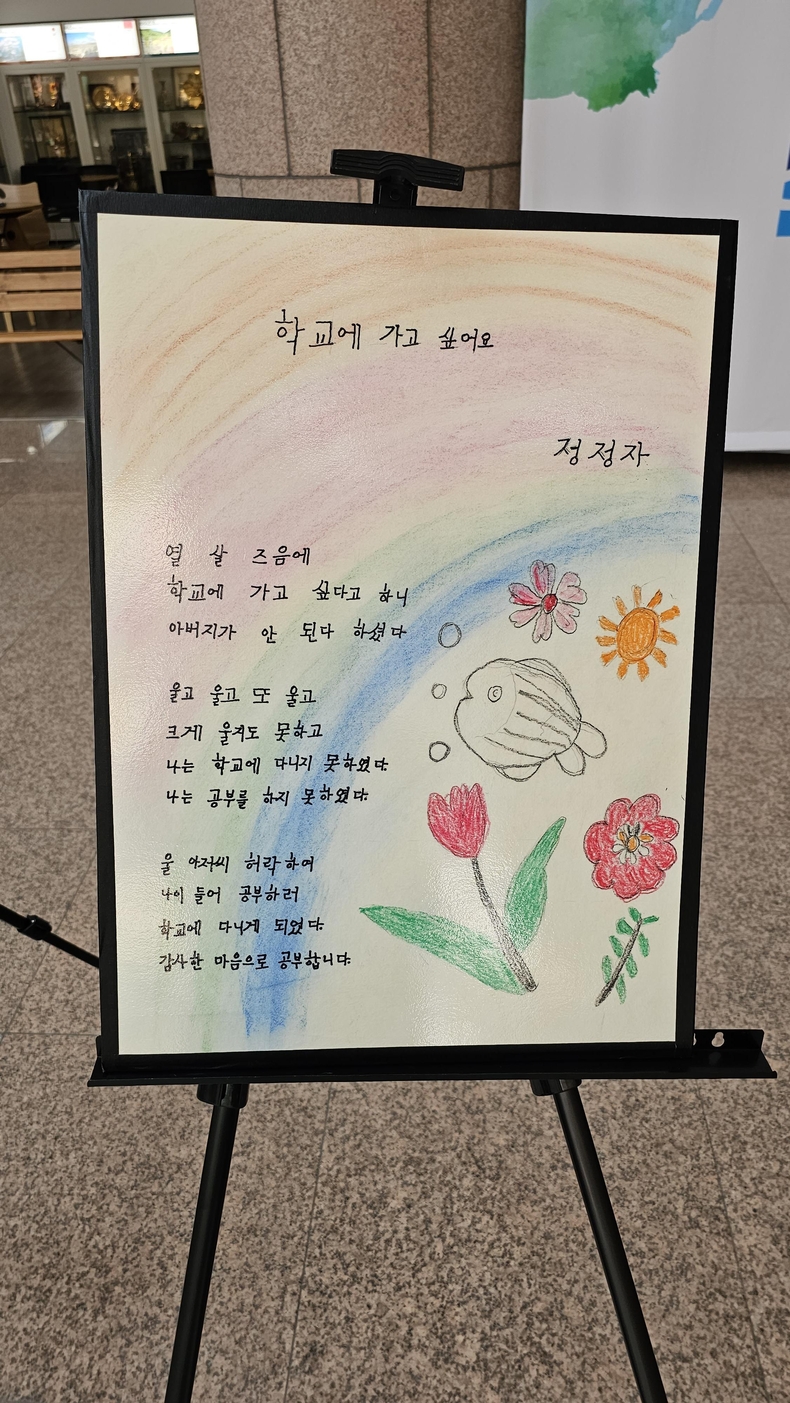 학교에 가고 싶어요
정정자
열 살 즈음에
학교에 가고 싶다고 하니
아버지가 안 된다 하셨다
울고 울고 또 울고
크게 울지도 못하고
나는 학교에 다니지 못하였다.
나는 공부를 하지 못하였다.
울 아저씨 허락하여
나이 들어 공부하러
학교에 다니게 되었다.
감사한 마음으로 공부합니다.